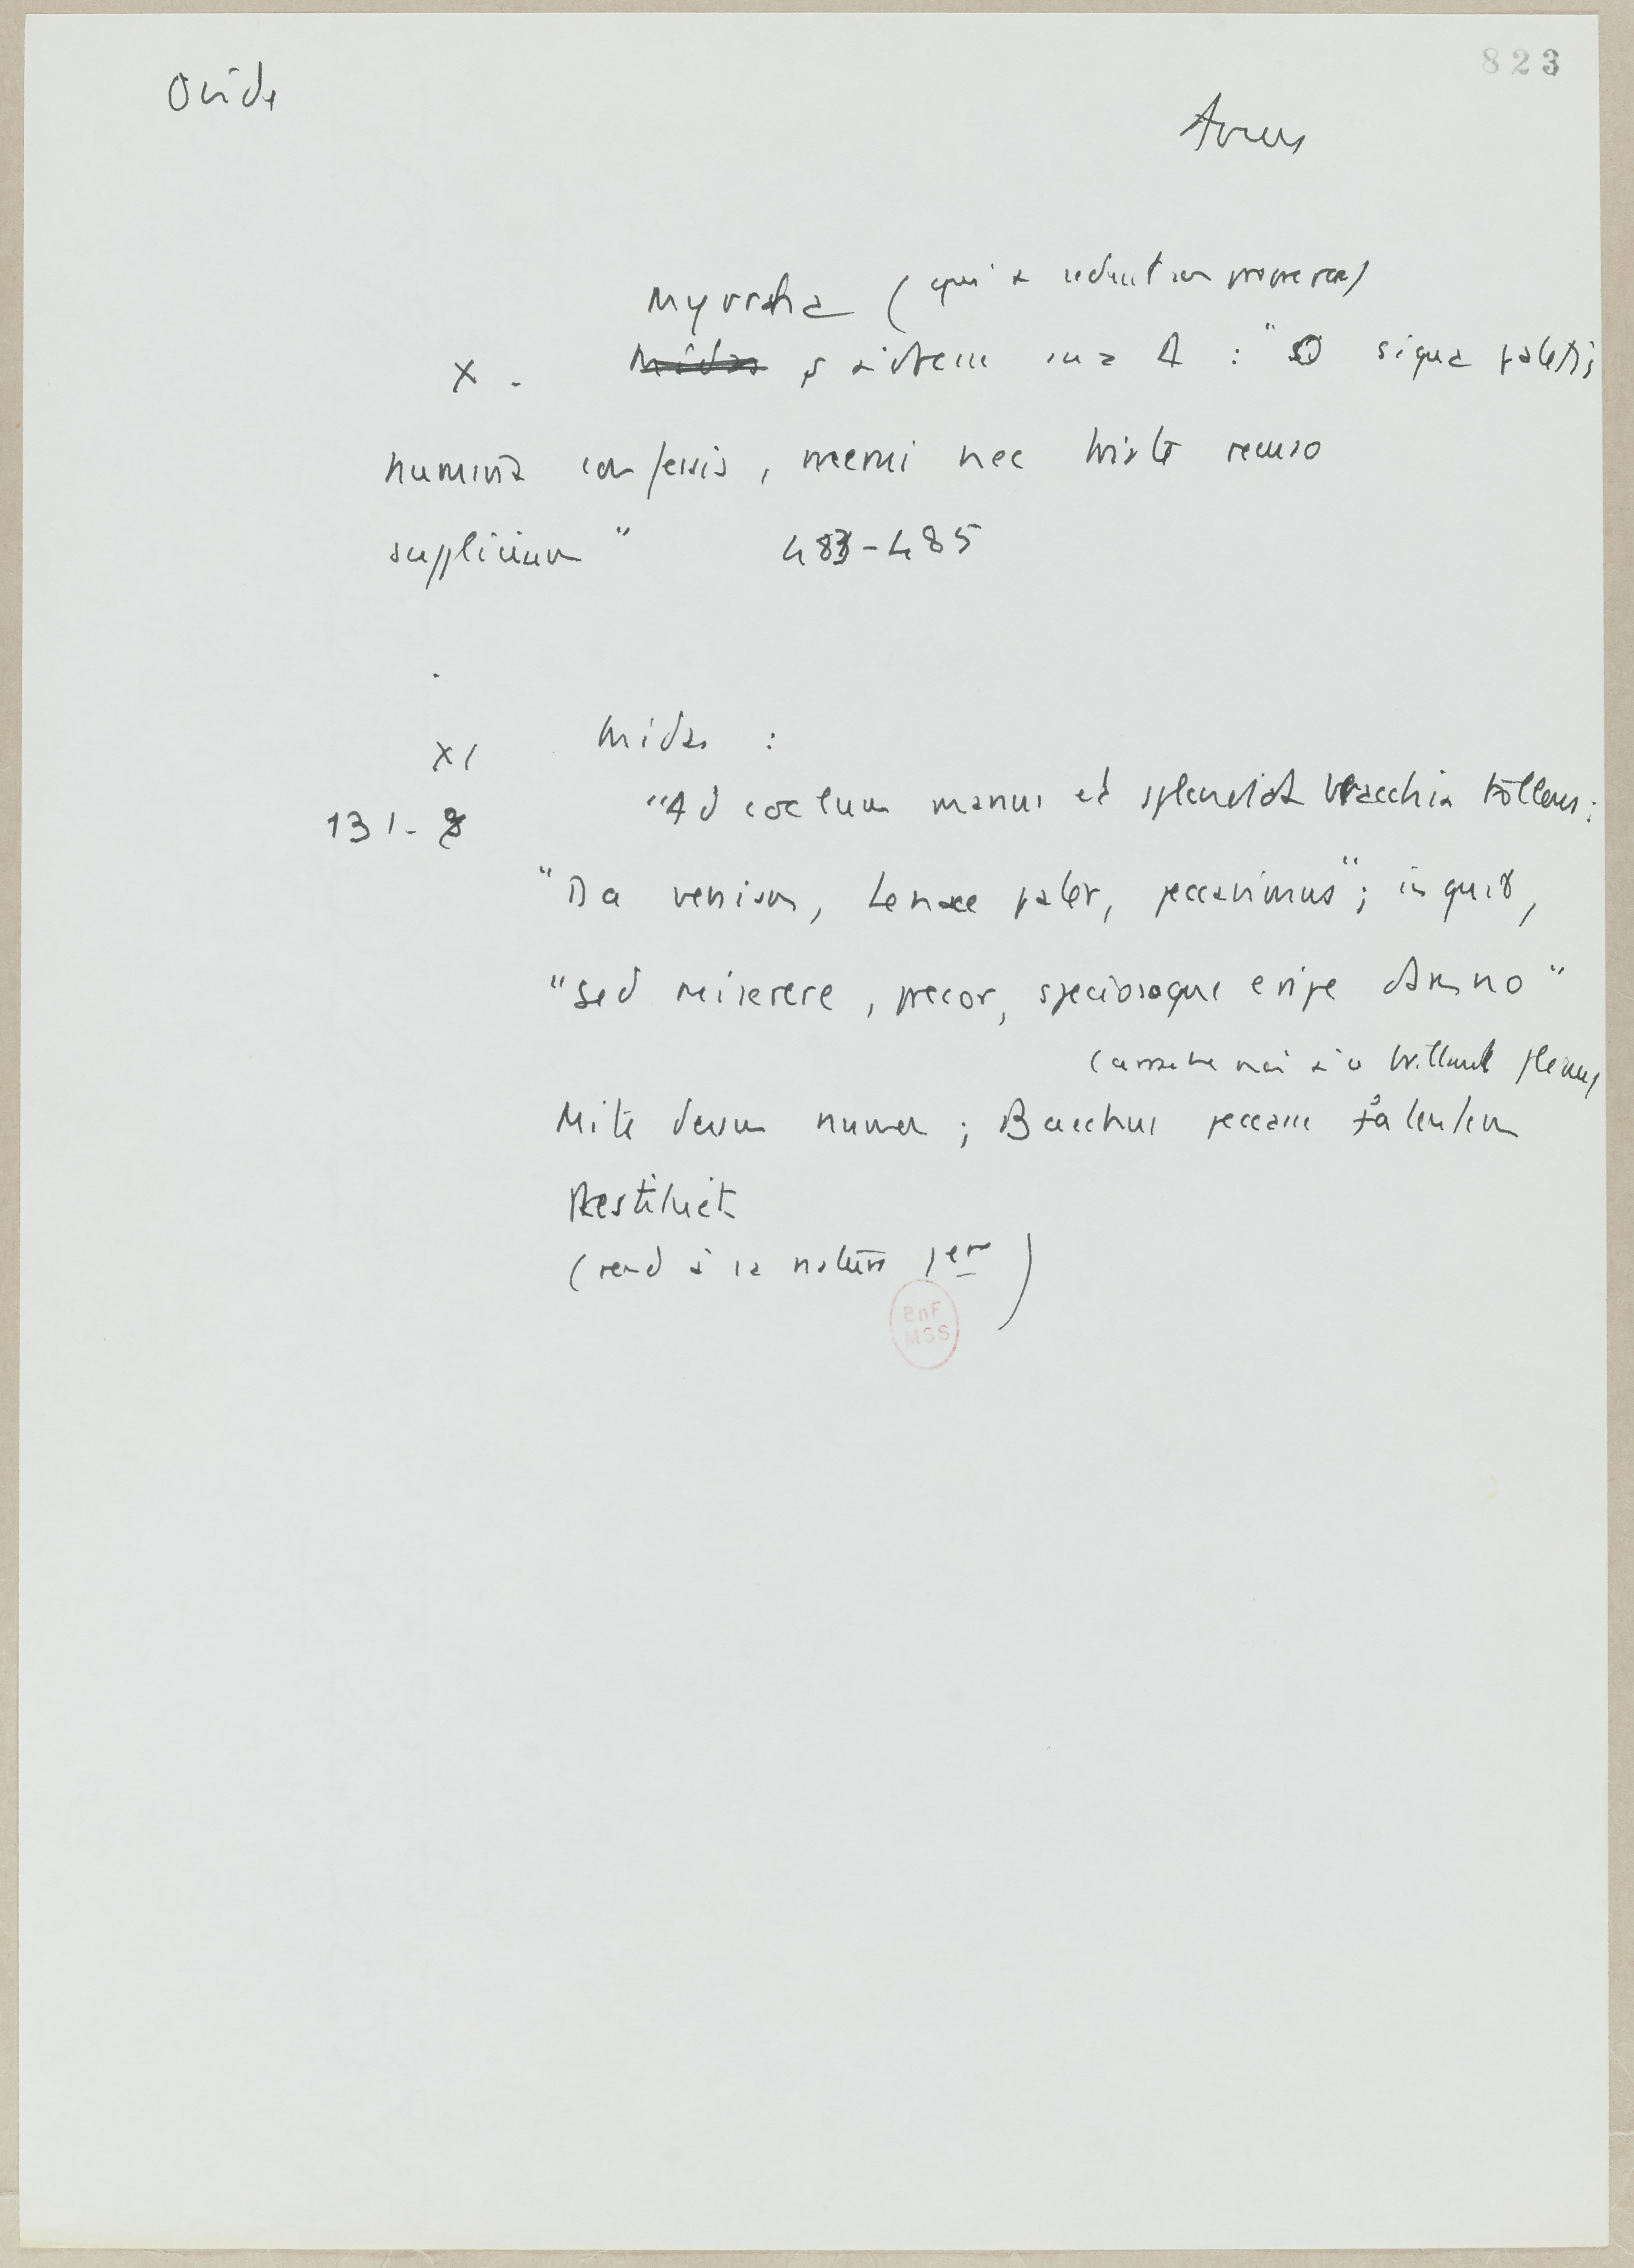 823
Ovide
Aveux
Myrrha (qui a séduit son propre père)
X - Midas s'adresse aux D : "O siqua patetis
numina confessis, merui nec triste recuso
supplicium" 483-485
XI Midas :
131-8 "Ad coelum manus et splendida bracchia tollens :
"Da veniam, Lenaee pater, peccavimus" ; inquit,
"sed miserere, precor, speciosoque eripe damno"
(arrache moi à ce brillant fléau)
Mite deum numen ; Bacchus peccasse fatentem
Restituit
(rend à la nature 1ère)
BnF
MSS